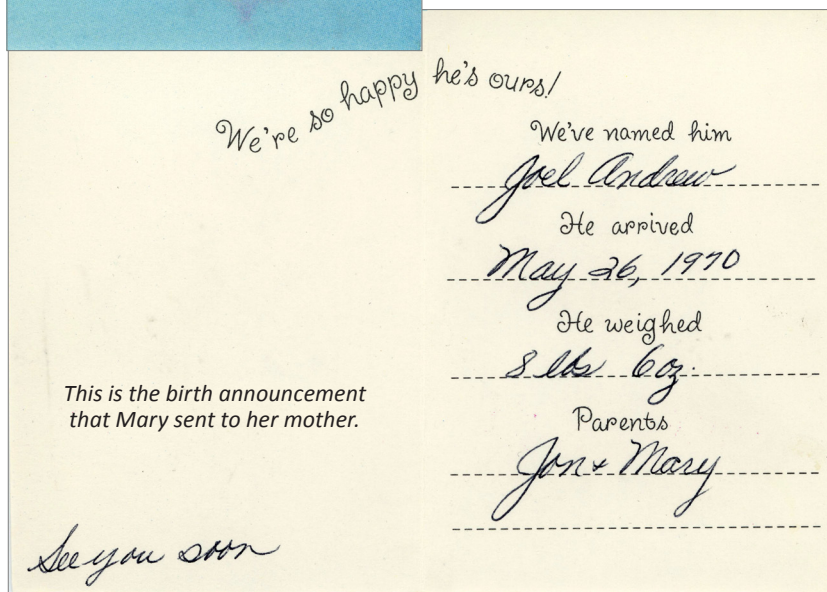 We're so happy he's ours!
We've named him
Joel Andrew
He arrived
May 26, 1970
He weighed
8 lbs 6 oz.
Parents
Jon + Mary
This is the birth announcement
that Mary sent to her mother.
See you soon